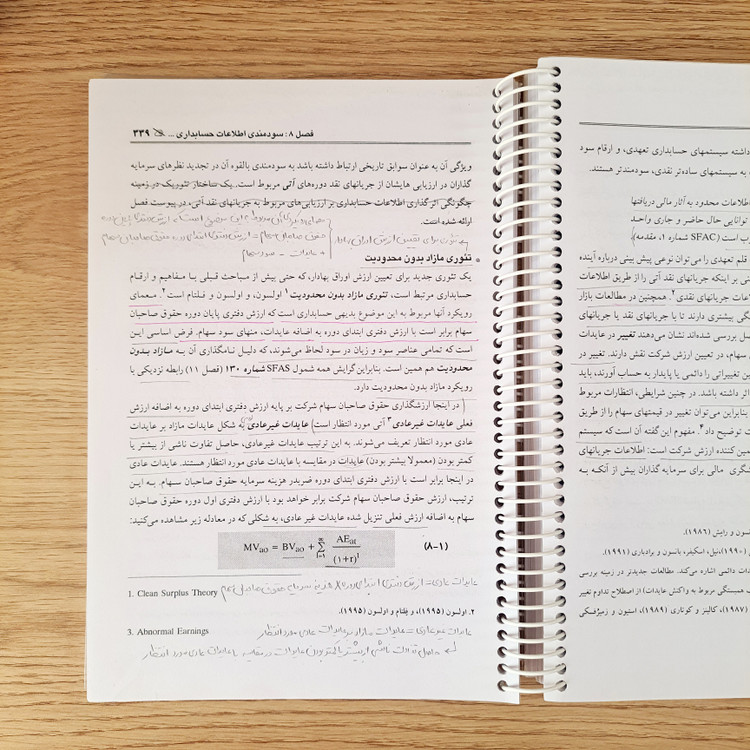 فصل ۸ : سودمندی اطلاعات حسابداری ... ۳۳۹
ویژگی آن به عنوان سوابق تاریخی ارتباط داشته باشد به سودمندی بالقوه آن در تجدید نظرهای سرمایه
گذاران در ارزیابی هایشان از جریانهای نقد دوره‌های آتی مربوط است. یک ساختار تئوریک در زمینه
چگونگی اثر گذاری اطلاعات حسابداری بر ارزیابی‌های مربوط به جریانهای نقد آتی، در پیوست فصل
ارائه شده است.
تئوری مازاد بدون محدودیت
یک تئوری جدید برای تعیین ارزش اوراق بهادار، که حتی بیش از مباحث قبلی با مفاهیم و ارقام
حسابداری مرتبط است، تئوری مازاد بدون محدودیت ۱ اولسون، و اولسون و فلتام است ۲. معمای
رویکرد آنها مربوط به این موضوع بدیهی حسابداری است که ارزش دفتری پایان دوره حقوق صاحبان
سهام برابر است با ارزش دفتری ابتدای دوره به اضافه عایدات، منهای سود سهام. فرض اساسی این
است که تمامی عناصر سود و زیان در سود لحاظ می‌شوند، که دلیل نامگذاری آن به مازاد بدون
محدودیت هم همین است. بنابراین گرایش همه شمول SFAS شماره ۱۳۰ (فصل ۱۱) رابطه نزدیکی با
رویکرد مازاد بدون محدودیت دارد.
در اینجا ارزشگذاری حقوق صاحبان سهام شرکت بر پایه ارزش دفتری ابتدای دوره به اضافه ارزش
فعلی عایدات غیرعادی ۳ آتی مورد انتظار است عایدات غیرعادی به شکل عایدات مازاد بر عایدات
عادی مورد انتظار تعریف می‌شوند. به این ترتیب عایدات غیرعادی، حاصل تفاوت ناشی از بیشتر یا
کمتر بودن (معمولا بیشتر بودن) عایدات در مقایسه با عایدات عادی مورد انتظار هستند. عایدات عادی
در اینجا برابر است با ارزش دفتری ابتدای دوره ضربدر هزینه سرمایه حقوق صاحبان سهام. به این
ترتیب، ارزش حقوق صاحبان سهام شرکت برابر خواهد بود با ارزش دفتری اول دوره حقوق صاحبان
سهام به اضافه ارزش فعلی تنزیل شده عایدات غیر عادی، به شکلی که در معادله زیر مشاهده می‌کنید:
MVao = BVao + Σ AEat / (۱+r)t (۸-۱)
1. Clean Surplus Theory
۲. اولسون (۱۹۹۵)، و فلتام و اولسون (۱۹۹۵).
3. Abnormal Earnings
عایدات غیرعادی = عایدات مازاد بر عایدات عادی مورد انتظار
داشته سیستمهای حسابداری تعهدی، و ارقام سود
به سیستمهای ساده‌تر نقدی، سودمندتر هستند.
اطلاعات محدود به آثار مالی دریافتها
توانایی حال حاضر و جاری واحد
(SFAC شماره ۱، مقدمه)
قلم تعهدی را می‌توان نوعی پیش بینی درباره آینده
نی بر اینکه جریانهای نقد آتی را از طریق اطلاعات
جریانهای نقدی ۲. همچنین در مطالعات بازار
گی بیشتری دارند تا با جریانهای نقد یا جریانهای
بررسی شده‌اند نشان می‌دهند تغییر در عایدات
سهام، در تعیین ارزش شرکت نقش دارند. تغییر در
تغییراتی را دائمی یا پایدار به حساب آورند، باید
اثر داشته باشد. در چنین شرایطی، انتظارات مربوط
بنابراین می‌توان تغییر در قیمتهای سهام را از طریق
توضیح داد ۴. مفهوم این گفته آن است که سیستم
کننده ارزش شرکت است: اطلاعات جریانهای
مالی برای سرمایه گذاران بیش از آنکه به
و رایش (۱۹۸۶).
اسکیفر، بانسون و برادباری (۱۹۹۱).
دائمی اشاره می‌کند. مطالعات جدیدتر در زمینه بررسی
همبستگی مربوط به واکنش عایدات) از اصطلاح تداوم تغییر
(۱۹۸۷)، کالینز و کوتاری (۱۹۸۹)، استیون و زمیژفسکی